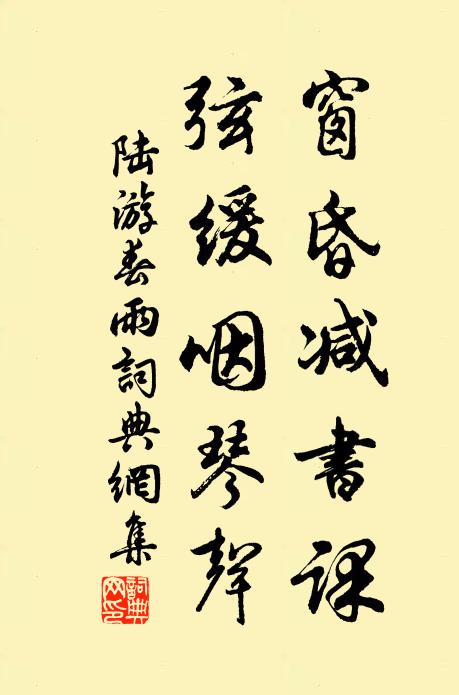 窗昏减書課
弦緩咽琴聲
陸游春雨詞典網集
詞典网印